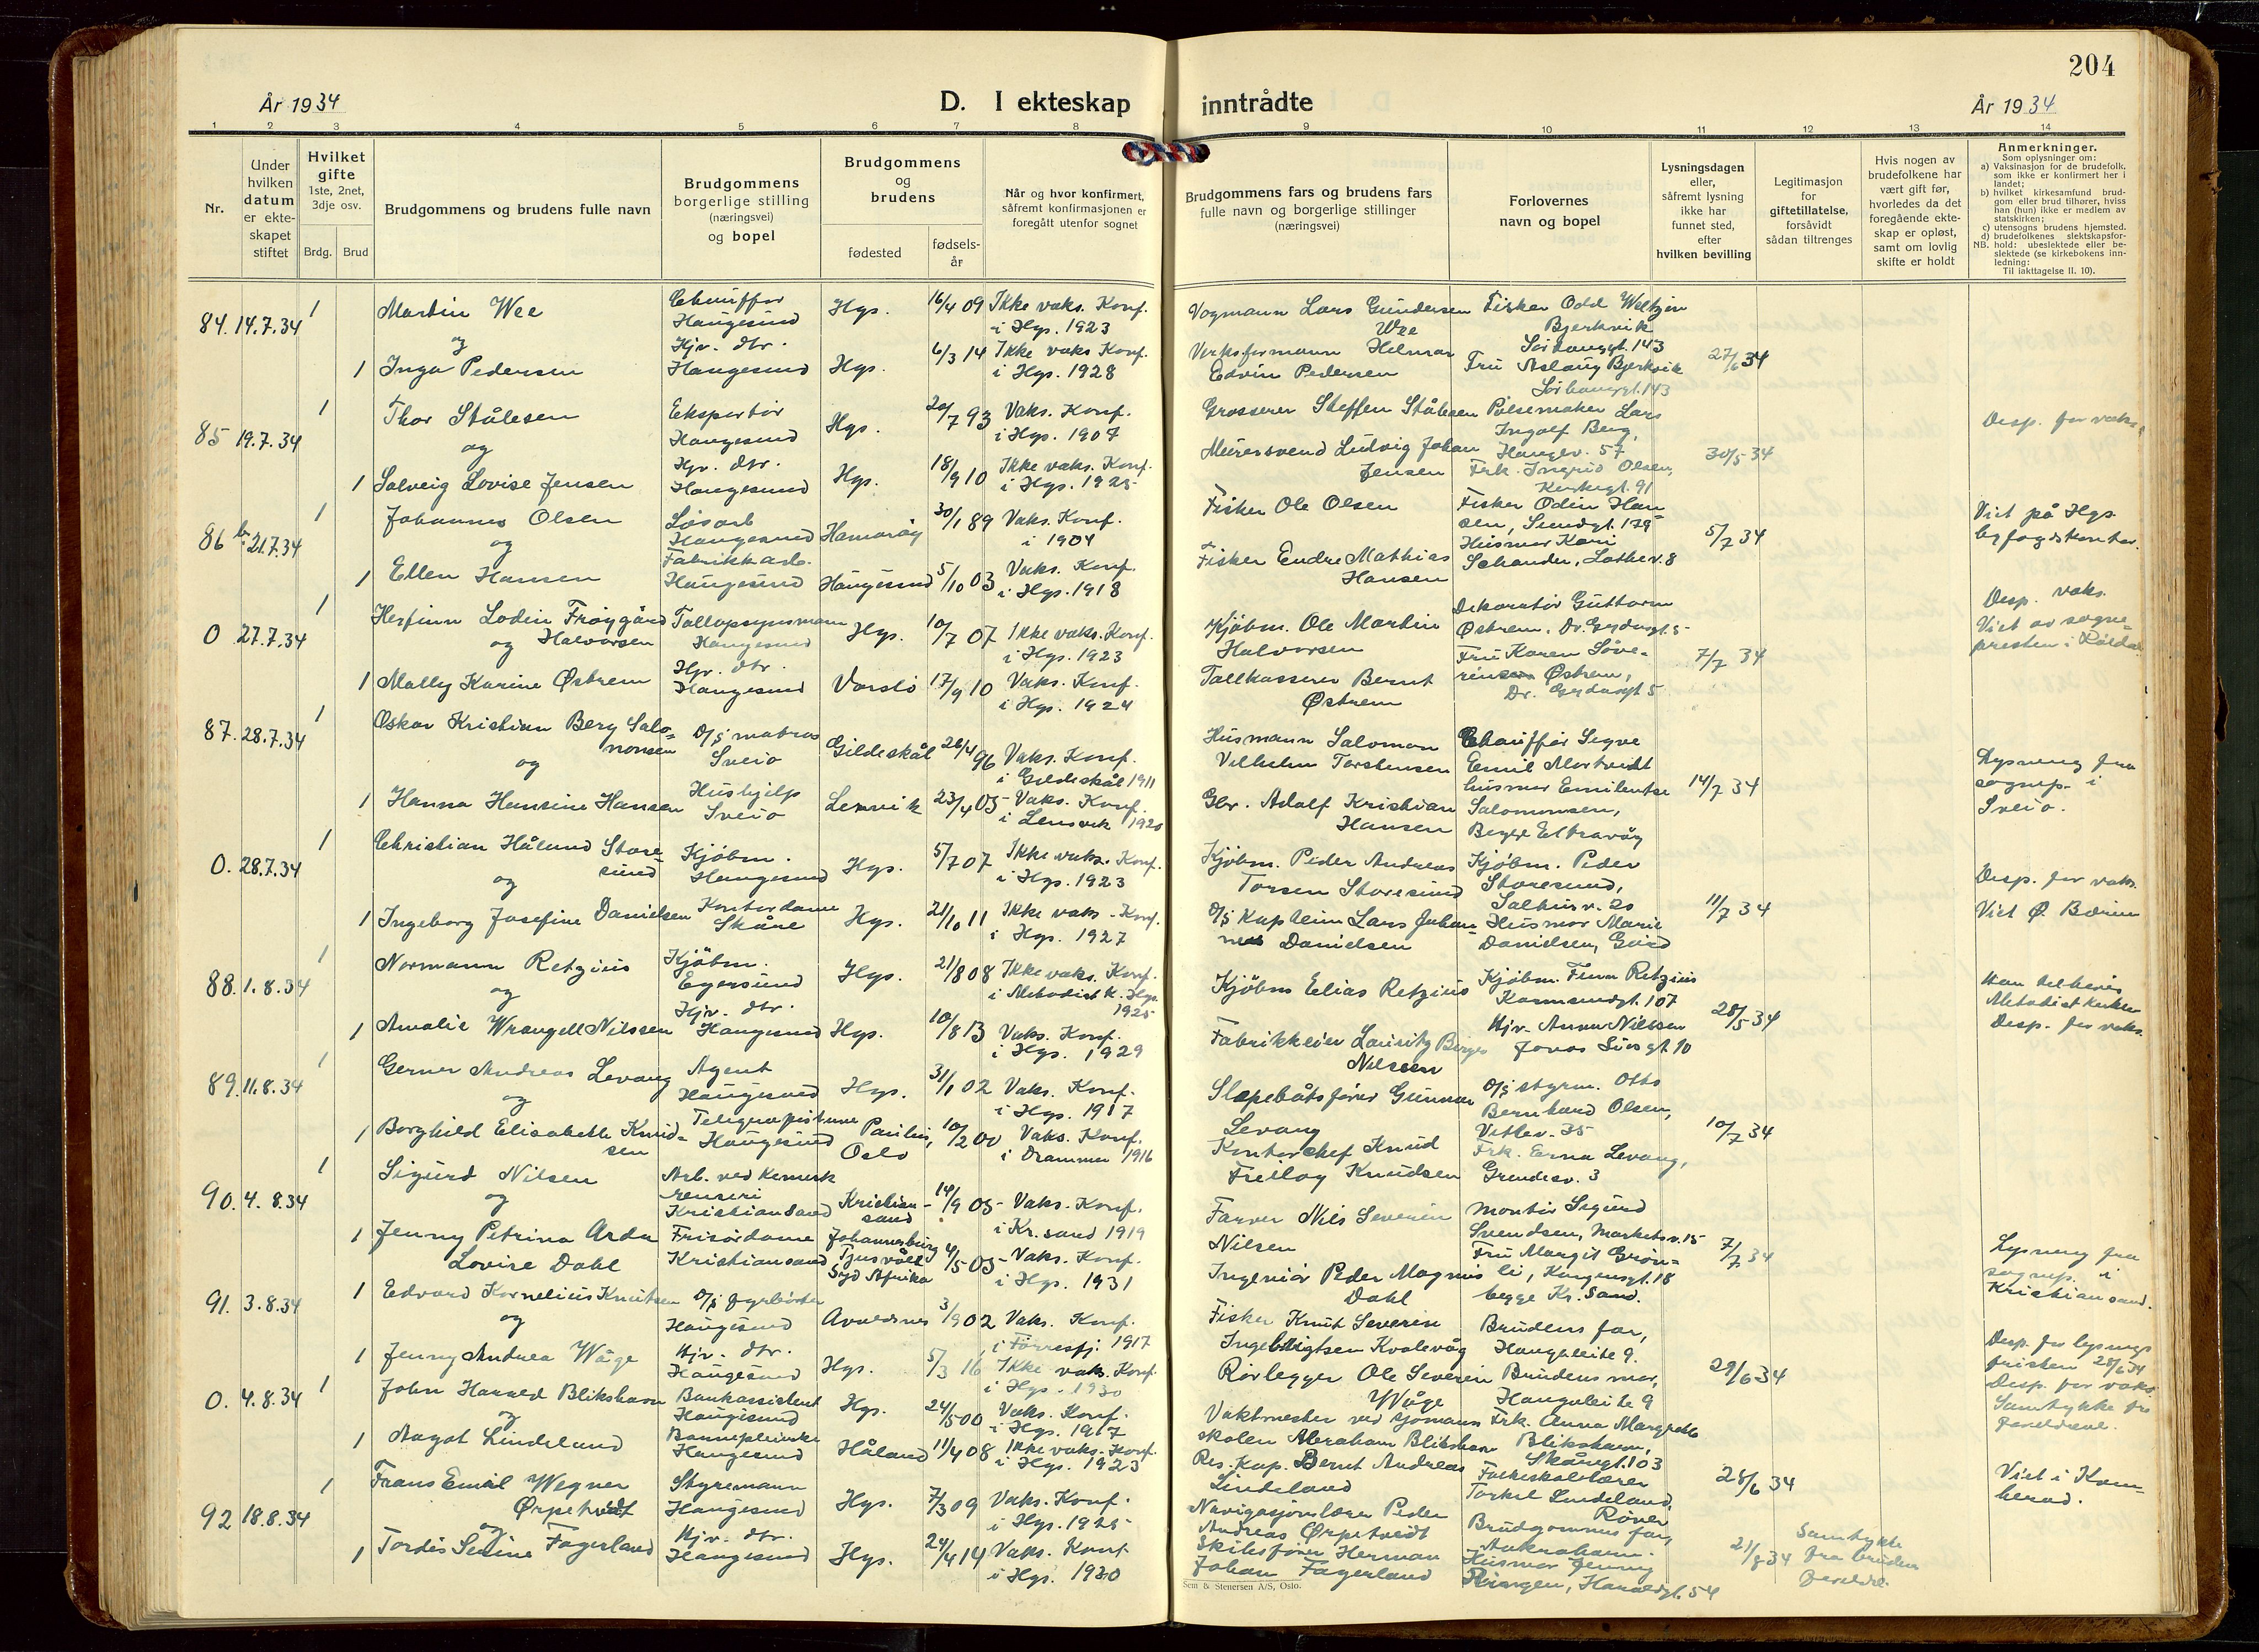 204
År 1934
D. I ekteskap inntrådte
År 1934
1 2 3 4 5 6 7 8 9 10 11 12 13 14
Nr.
Under hvilken datum er ekteskapet stiftet
Hvilket gifte 1ste, 2net, 3dje osv.
Brdg. Brud
Brudgommens og brudens fulle navn
Brudgommens borgerlige stilling (næringsvei) og bopel
Brudgommens og brudens
fødested
fødsels-år
Når og hvor konfirmert, såfremt konfirmasjonen er foregått utenfor sognet
Brudgommens fars og brudens fars fulle navn og borgerlige stillinger (næringsvei)
Forlovernes navn og bopel
Lysningsdagen eller, såfremt lysning ikke har funnet sted, efter hvilken bevilling
Legitimasjon for giftetillatelse, forsåvidt sådan tiltrenges
Hvis nogen av brudefolkene har vært gift før, hvorledes da det foregående ekteskap er opløst, samt om lovlig skifte er holdt
Anmerkninger.
Som oplysninger om:
a) Vaksinasjon for de brudefolk, som ikke er konfirmert her i landet;
b) hvilket kirkesamfund brudgom eller brud tilhører, hviss han (hun) ikke er medlem av statskirken;
c) utensogns brudens hjemsted.
d) brudefolkenes slektskapsforhold: ubeslektede eller beslektede (se kirkebokens innledning:
NB. Til iakttagelse II. 10).
84. 14.7.34 1 Martin Wee Chauffør Haugesund Hgs. 16/4 09 Ikke vaks. Konf. i Hgs. 1923
Vogmann Lars Gundersen Wee
Fisker Odd Weltzin Bjerkvik Sørhauggt. 143
og
1 Inga Pedersen Hjv. dtr. Haugesund Hgs. 6/3 14 Ikke vaks Konf. i Hgs. 1928
Verksformann Helmar Edvin Pedersen
Fru Aslaug Bjerkvik Sørhauggt. 143
27/6 34
85 19.7.34 1 Thor Stålesen Eksportør Haugesund Hgs. 20/7 93 Vaks. Konf. i Hgs. 1907
Grosserer Steffen Stålesen
Pølsemaker Lars Ingolf Berg, Haugev. 57
Desp. for vaks.
og
1 Solveig Lovise Jensen Hjv. dtr. Haugesund Hgs. 18/9 10 Ikke vaks. Konf. i Hgs. 1925
Murersvend Ludvig Johan Jensen
Frk. Ingrid Olsen, Kirkegt. 91
30/5 34
86 b. 21.7.34 1 Johannes Olsen Løsarb Haugesund Hamarøy 30/1 89 Vaks. Konf. i 1904
Fisker Ole Olsen
Fisker Odin Hansen, Sundgt. 179
5/7 34
Viet på Hgs. byfogdskontor.
og
1 Ellen Hansen Fabrikkarb. Haugesund Haugesund 5/10 03 Vaks. Konf. i Hgs. 1918
Fisker Endre Mathias Hansen
Husmor Kari Schander, Lothev. 8
0 27.7.34 1 Herfinn Lodin Frøygård Halvorsen Tollopsynsmann Haugesund Hgs. 10/7 07 Ikke vaks. Konf. i Hgs. 1923
Kjøbm. Ole Martin Halvorsen
Dekoratør Guttorm Østrem, Dr. Gerdasgt. 5
Desp. vaks. Viet av sogne-presten i Røldal
og
1 Mally Karine Østrem Hjv. dtr. Haugesund 17/9 10 Vaks. Konf. i Hgs. 1924
Tollkasserer Bernt Østrem
Fru Karen Sørensen Østrem,
7/7 34
87. 28.7.34 1 Oskar Kristian Berg Salomonsen D/S matros Sveio Gildeskål 26/4 96 Vaks. Konf. i Gildeskål 1911
Husmann Salomon Vilhelm Torstensen
Chauffør Sigve Emil Mortveidt
Lysning fra sognep. i Sveio.
og
1 Hanna Hansine Hansen Hushjelp Sveio Lensvik 23/4 05 Vaks. Konf. i Lensvik 1920
Gbr. Adolf Kristian Hansen
husmor Salomonsen, Begge Eltravåg
14/7 34
0. 28.7.34 1 Christian Hålund Storesund Kjøbm. Haugesund Hgs. 5/7 07 Ikke vaks. Konf. i Hgs. 1923
Kjøbm. Peder Andreas Torsen Storesund
Kjøbm. Peder Storesund, Salhusv. 20
Desp. for vaks.
og
1 Ingeborg Josefine Danielsen Kontordame Skåre Hgs. 21/10 11 Ikke vaks. Konf. i Hgs. 1927
D/S Kaptein Lars Johannes Danielsen
Husmor Marie Danielsen, Gard
11/7 34
Viet Ø. Bærum
88. 1.8.34 1 Normann Retzius Kjøbm. Egersund Hgs. 21/8 08 Ikke vaks. Konf. i Metodist k. Hgs. 1925
Kjøbm Elias Retzius
Kjøbm. Finn Retzius Karmsundgt. 107
Han tilhører Metodistkirken Desp. for vaks.
og
1 Amalie Wrangell Nilssen Hjv. dtr. Haugesund Hgs. 10/8 13 Vaks. Konf. i Hgs. 1929
Fabrikkeier Lauritz Berges Nilssen
Hjv. Anna Nilssen Jonas Liesgt. 10
28/5 34
89. 11.8.34 1 Gerner Andreas Levang Agent Haugesund Hgs. 31/1 02 Vaks. Konf. i Hgs. 1917
Slepebåtsfører Gunnar Levang
D/S styrm. Otto Bernhard Olsen, Vitlev. 35
og
1 Borghild Elisabeth Knudsen Telegrafistinne Haugesund Paulus, Oslo 10/2 00 Vaks. Konf. i Drammen 1916
Kontorchef Knud Knudsen
Frk. Erna Levang, Grindesv. 3
10/7 34
90. 4.8.34 1 Sigurd Nilsen Arb. ved Kemisk renseri Kristiansand Kristiansand 14/9 05 Vaks. Konf. i Kr.sand 1919
Farver Nils Severin Nilsen
Montør Sigurd Svendsen, Markensv. 15
og
1 Jenny Petrina Arda Lovise Dahl Frisørdame Kristiansand Johannesburg Syd Afrika 4/5 05 Vaks. Konf. i Hgs. 1931
Ingeniør Peder Magnus Dahl
Fru Margit Grønli, Kongensgt. 18 begge Kr. Sand.
7/7 34
Lysning fra sognep. i Kristiansand.
91. 3.8.34 1 Edvard Kornelius Knutsen D/S fyrbøter Haugesund Avaldsnes 3/9 02 Vaks. Konf. i Førresfj. 1917
Fisker Knut Severin Ingebrigtsen Kvalevåg
Brudens far, Haugaleite 9.
og
1 Jenny Andrea Våge Hjv. dtr. Haugesund Hgs. 5/3 16 Ikke vaks. Konf. i Hgs. 1930
Rørlegger Ole Severin Våge
Brudens mor, Haugaleite 9
29/6 34
Desp. for lysnings fristen 28/6 34 Desp. for vaks. Samtykke fra foreldrene.
0. 4.8.34 1 John Harald Blikshavn Bankassistent Haugesund Hgs. 24/5 00 Vaks. Konf. i Hgs. 1917
Vaktmester ved sjømannsskolen Abraham Blikshavn
Frk. Anna Margrethe Blikshavn, Skåregt. 103
og
1 Aagot Lindeland Haugesund Håland 11/4 08 Ikke vaks. Konf. i Hgs. 1923
Res. Kap. Bernt Andreas Lindeland
Folkeskolelærer Torkel Lindeland,
28/6 34
Viet i Kornberad.
92 18.8.34 1 Frans Emil Wegner Ørpetvedt Styrmann Haugesund Hgs. 7/3 09 Vaks. Konf. i Hgs. 1925
Navigasjonslærer Peder Andreas Ørpetvedt
Brudgommens far,
og
1 Tordis Serine Fagerland Hjv. dtr. Haugesund Hgs. 24/4 14 Vaks. Konf. i Hgs. 1930
Skibsfører Herman Johan Fagerland
Husmor Jenny Ringen, Haraldsgt. 54
21/8 34
Samtykke fra bruden foreldre.
Sem & Stenersen A/S, Oslo.